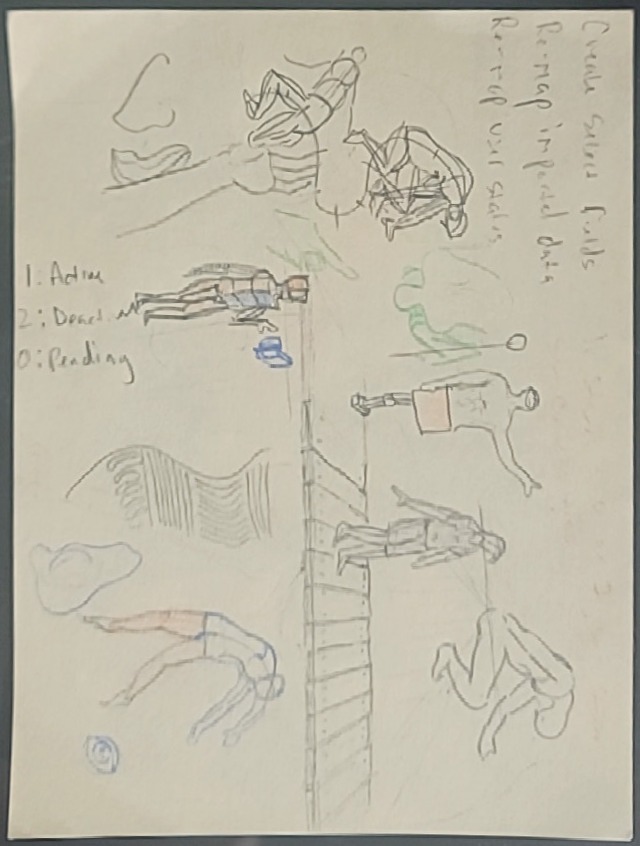 Create Select Fields
Re-map imported data
Re-map user states
1: Active
2: Deact
0: Pending